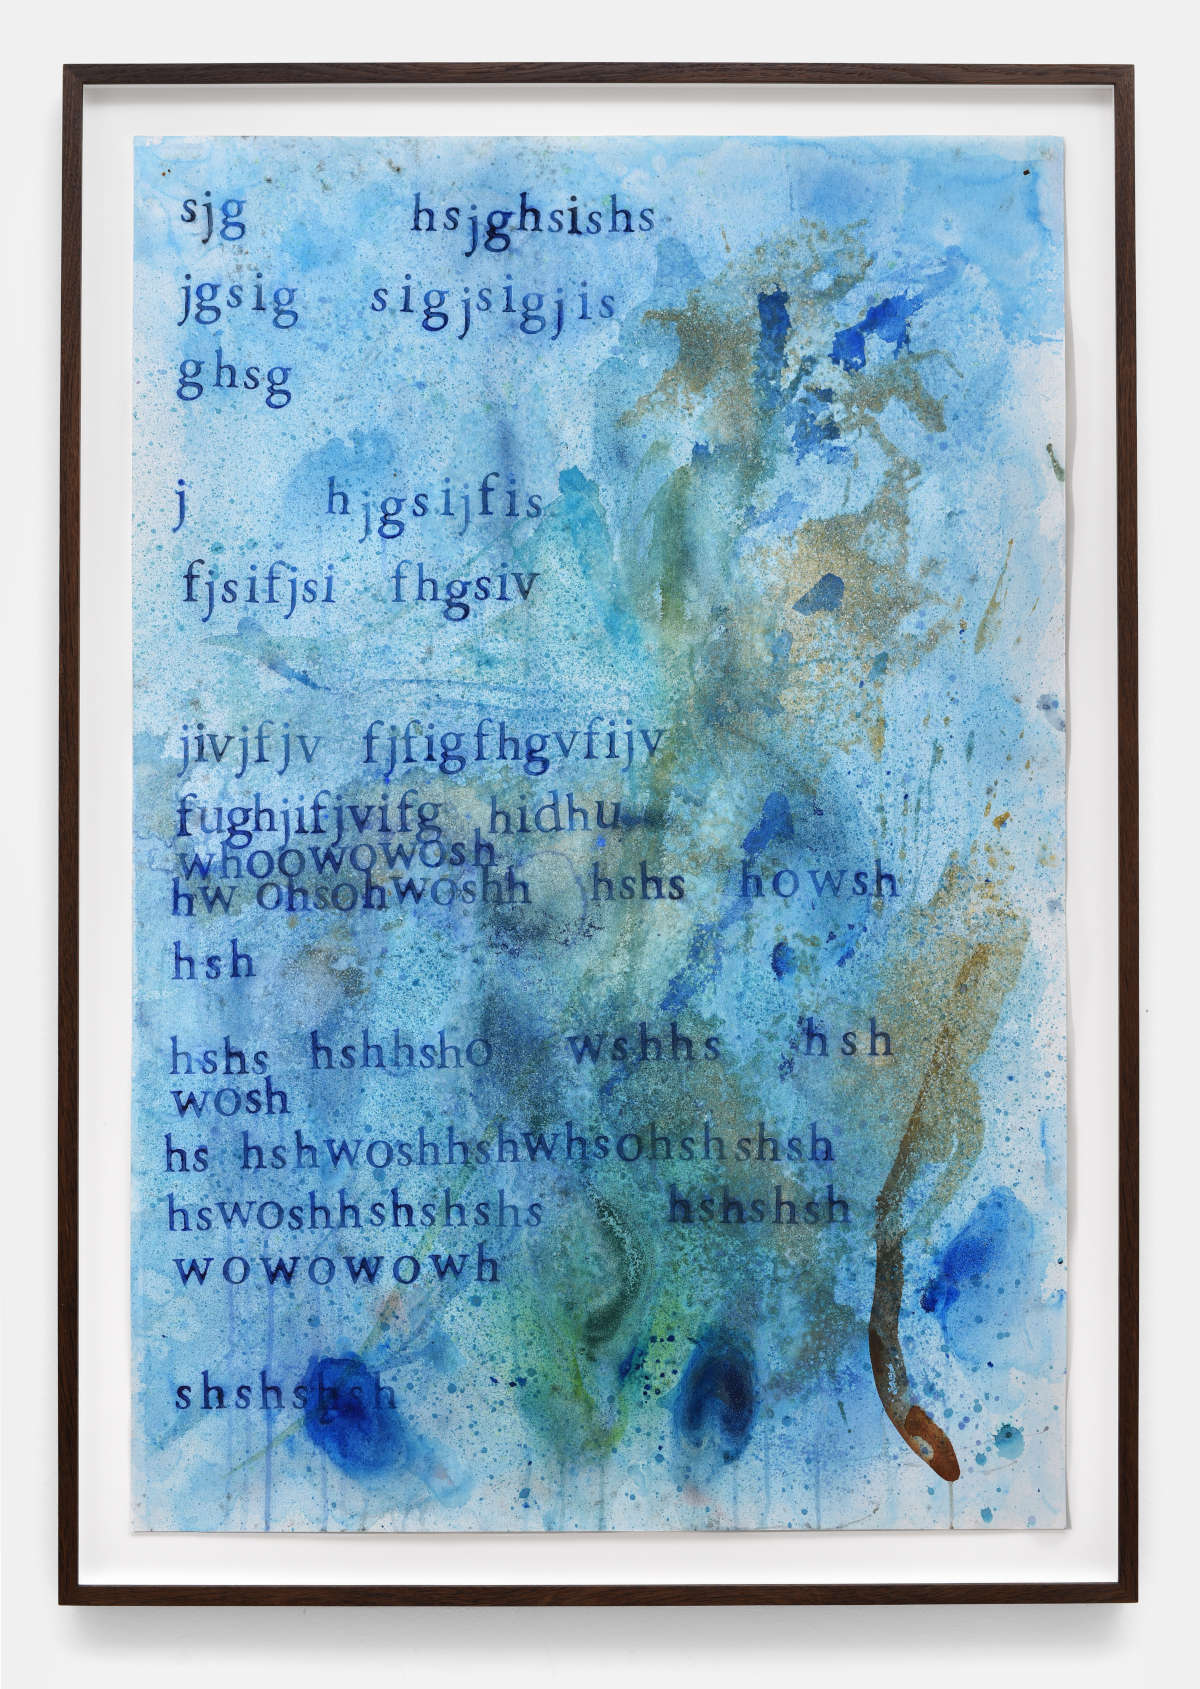 sjg hsjghsishs
jgsig sigjsigjis
ghsg
j hjgsijfis
fjsifjsi fhgsiv
jivjfjv fjfigfhgvfijv
fughjifjvifg hidhu
whoowowowosh
hw ohsohwoshh hshs howsh
hsh
hshs hshhsho wshhs hsh
wosh
hs hshwoshhshwhsohshshsh
hswoshhshshshs hshshsh
wowowowh
shshshsh